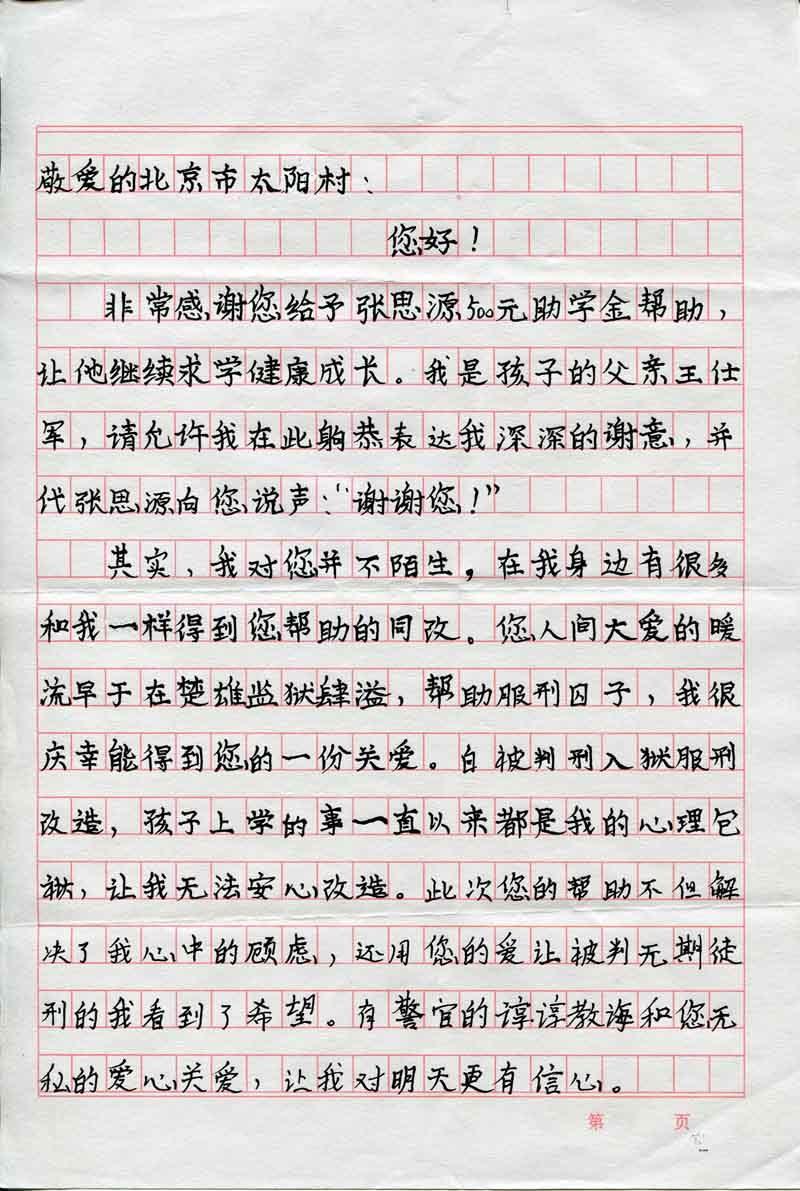 敬爱的北京市太阳村:
您好!
非常感谢您给予张思源500元助学金帮助,
让他继续求学健康成长。我是孩子的父亲王仕
军,请允许我在此躬恭表达我深深的谢意,并
代张思源向您说声:“谢谢您!”
其实,我对您并不陌生,在我身边有很多
和我一样得到您帮助的同改。您人间大爱的暖
流早于在楚雄监狱肆溢,帮助服刑囚子,我很
庆幸能得到您的一份关爱。自被判刑入狱服刑
改造,孩子上学的事一直以来都是我的心理包
袱,让我无法安心改造。此次您的帮助不但解
决了我心中的顾虑,还用您的爱让被判无期徒
刑的我看到了希望。有警官的谆谆教诲和您无
私的爱心关爱,让我对明天更有信心。
第 页